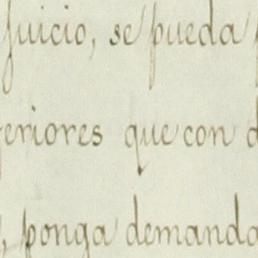 juicio, se pueda
eriores que con d
, ponga demanda